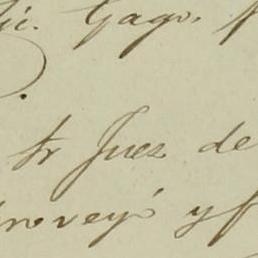 Gago.
Sr Juez de
proveyó y f